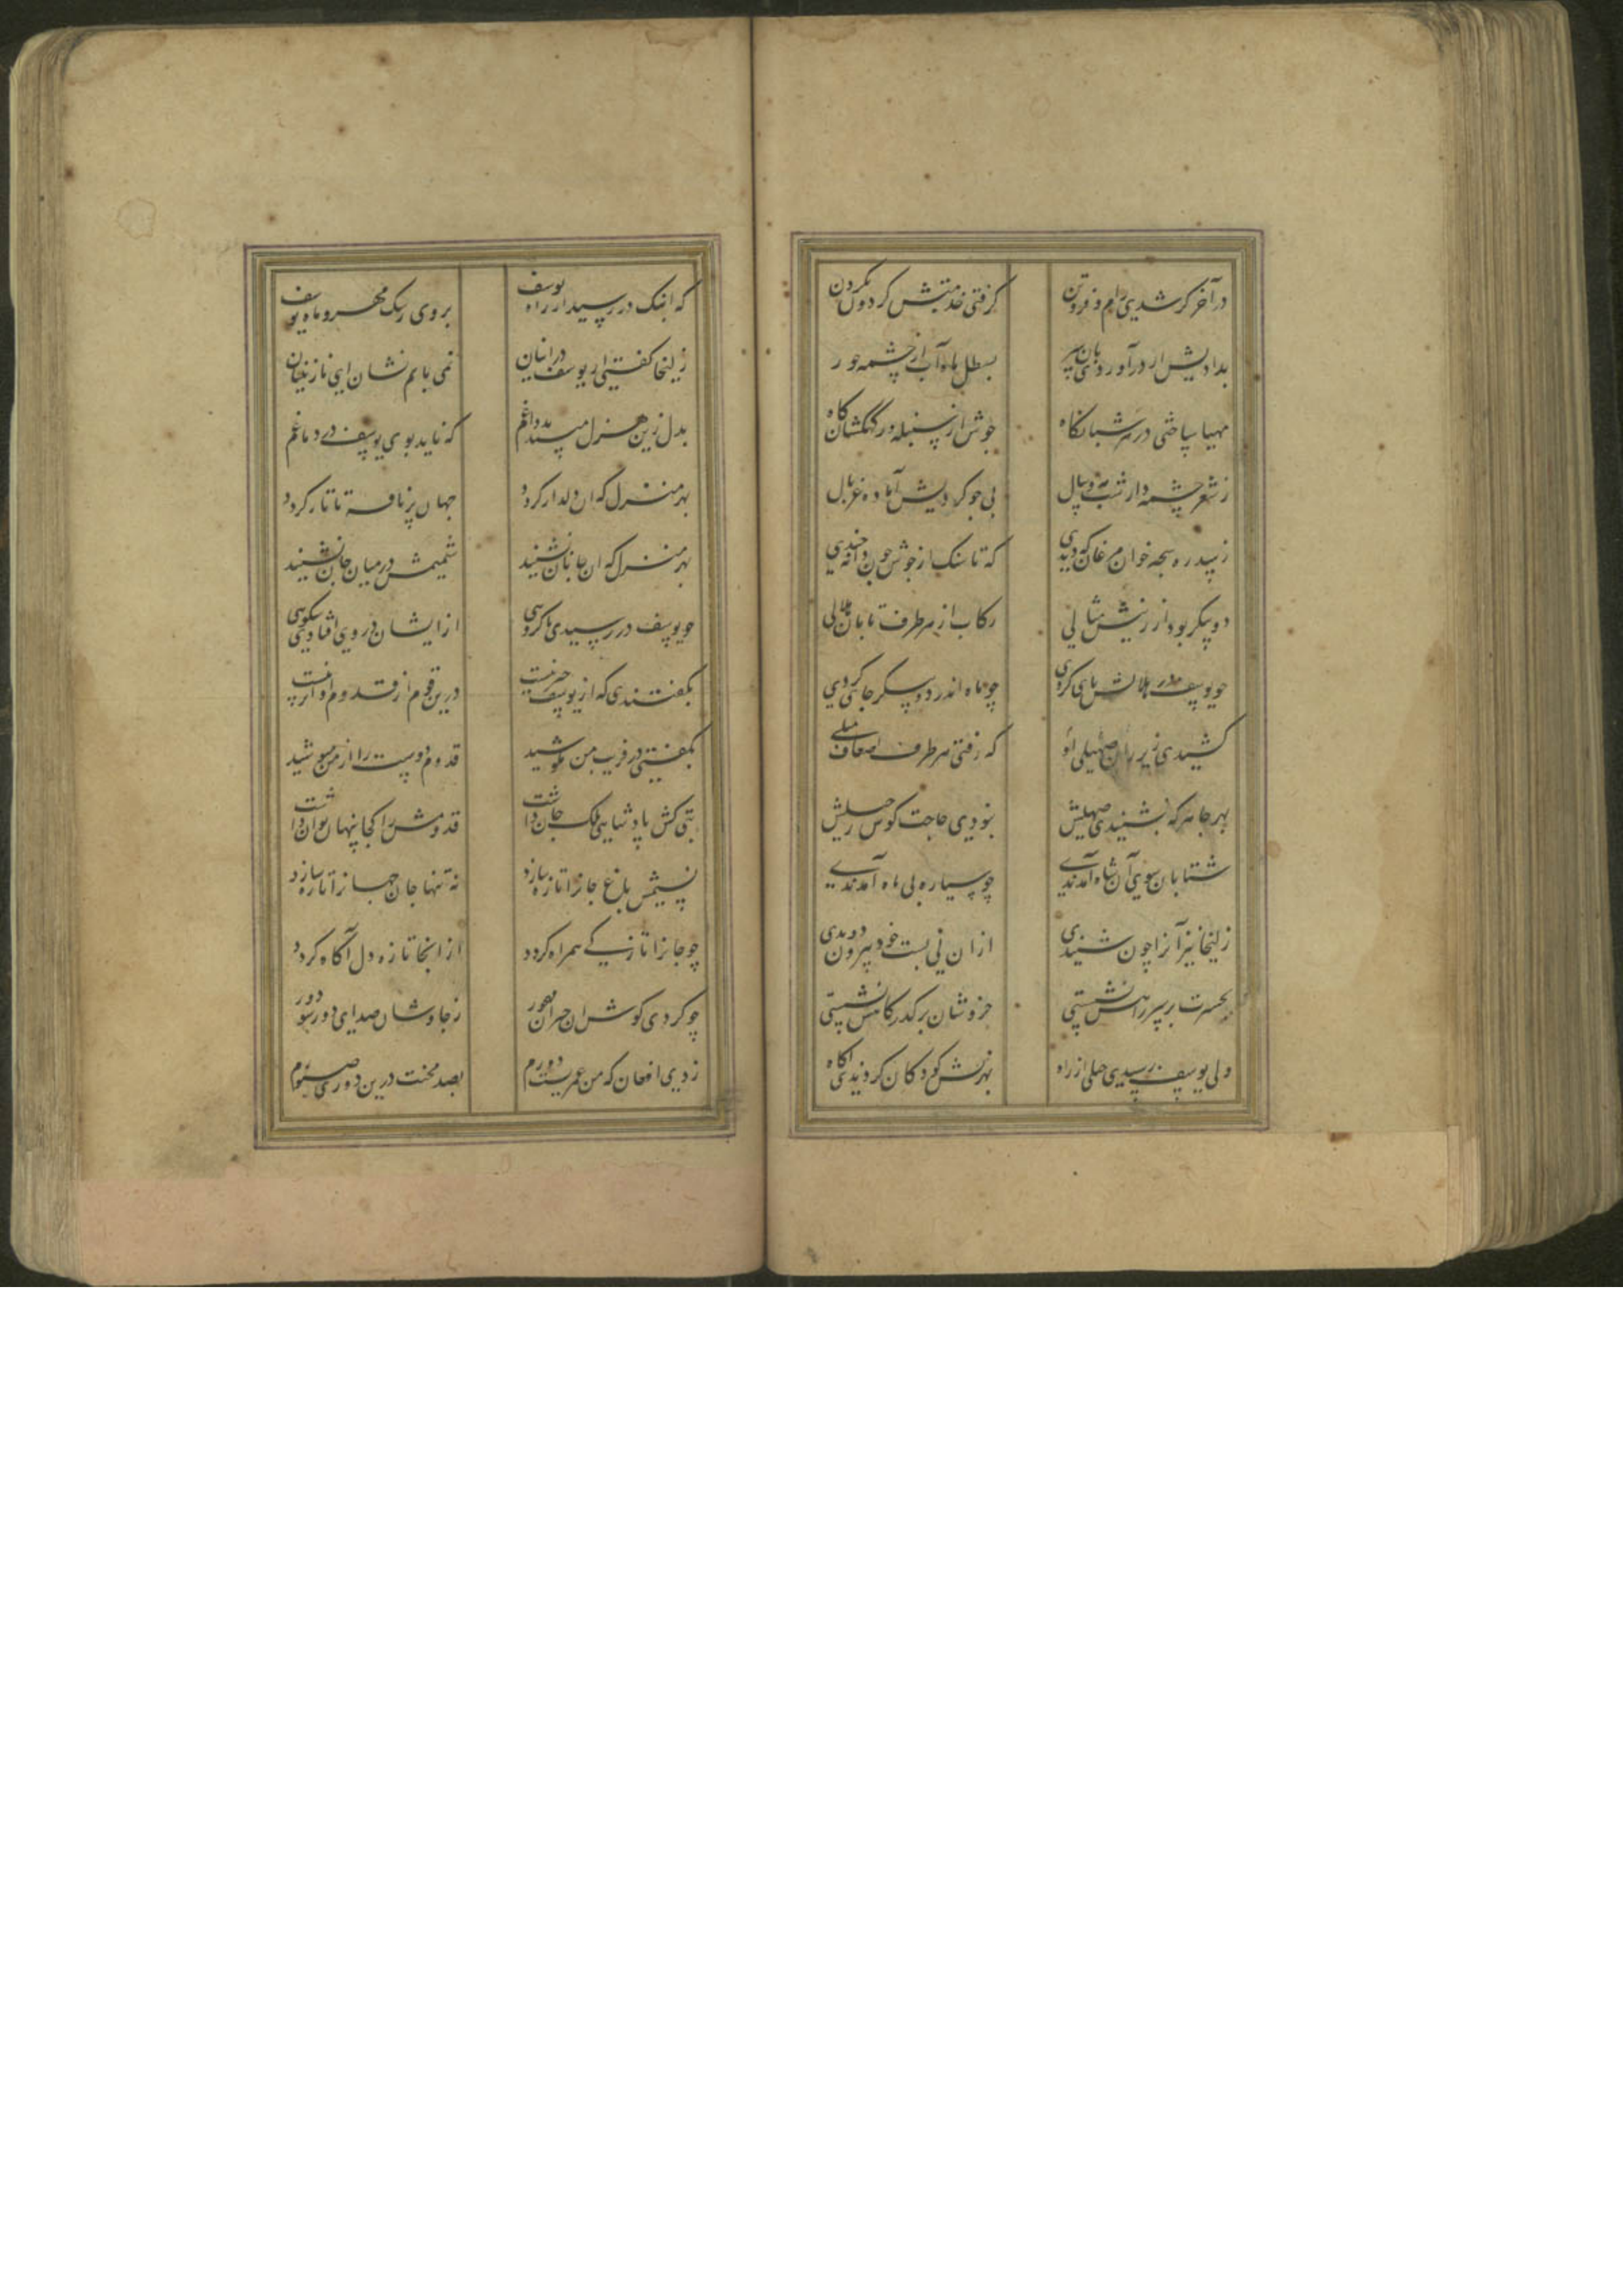 در آخر گر شدی رام و فروتن گرفتی خدمتش گردون بگردن
بسطل ماه آب از چشمه حور
مهیا ساختی در هر شبانگاه جوش از سنبله در کهکشان کاه
ز شعر چشمه دار شب مه و سال پی جو کردیش آماده غربال
ز سدره سبحه خوان مرغان که دیدی که تا سنک از جوش چون دانه چیدی
دو پیکر بود از زینش مثالی رکاب از هر طرف تابان هلالی
چو یوسف در هلالش پای کردی چو ماه اندر دو پیکر جای کردی
کشیدی زیر ران صهیلی او که رفتی هر طرف اضعاف میلی
بهر جا هر که بشنیدی صهیلش نبودی حاجت کوس رحیلش
شتابان سوی آن شاه آمدندی چو سیاره پی ماه آمدندی
زلیخا نیز آنرا چون شنیدی ازان نی بست خود بیرون دویدی
بحسرت بر سر راهش نشستی خروشان بر گذرگاهش نشستی
ولی یوسف رسیدی خیلی از راه بهزلش کودکان کردندی آگاه
که اینک در رسید از راه یوسف بروی رشک مهر و ماه یوسف
زلیخا گفتی از یوسف در اینان نمی یابم نشان ای نازنینان
بدل زین هزل مپسندید داغم که ناید بوی یوسف در دماغم
بهر منزل که آن دلدار گردد جهان پر نافه تاتار گردد
بهر منزل که آن جانان نشیند شمیمش در میان جان نشیند
چو یوسف در رسیدی با گروهی ازایشان در روی افتادی شکوهی
بگفتندی که از یوسف خبر نیست درین قوم از قدوم او اثر نیست
بگفتی در فریب من مکوشید قدوم دوست را از من مپوشید
بتی کش پادشاهی ملک جان داشت قدومش را کجا پنهان توان داشت
نسیمش باغ جانرا تازه سازد نه تنها جان جهانرا تازه سازد
چو جانرا تازگی همراه گردد از انجا تازه دل آگاه گردد
چو کردی گوش آن حیران مهجور ز چاوشان صدای دور شو دور
زدی افغان که من عمریست دورم بصد محنت درین دوری صبورم